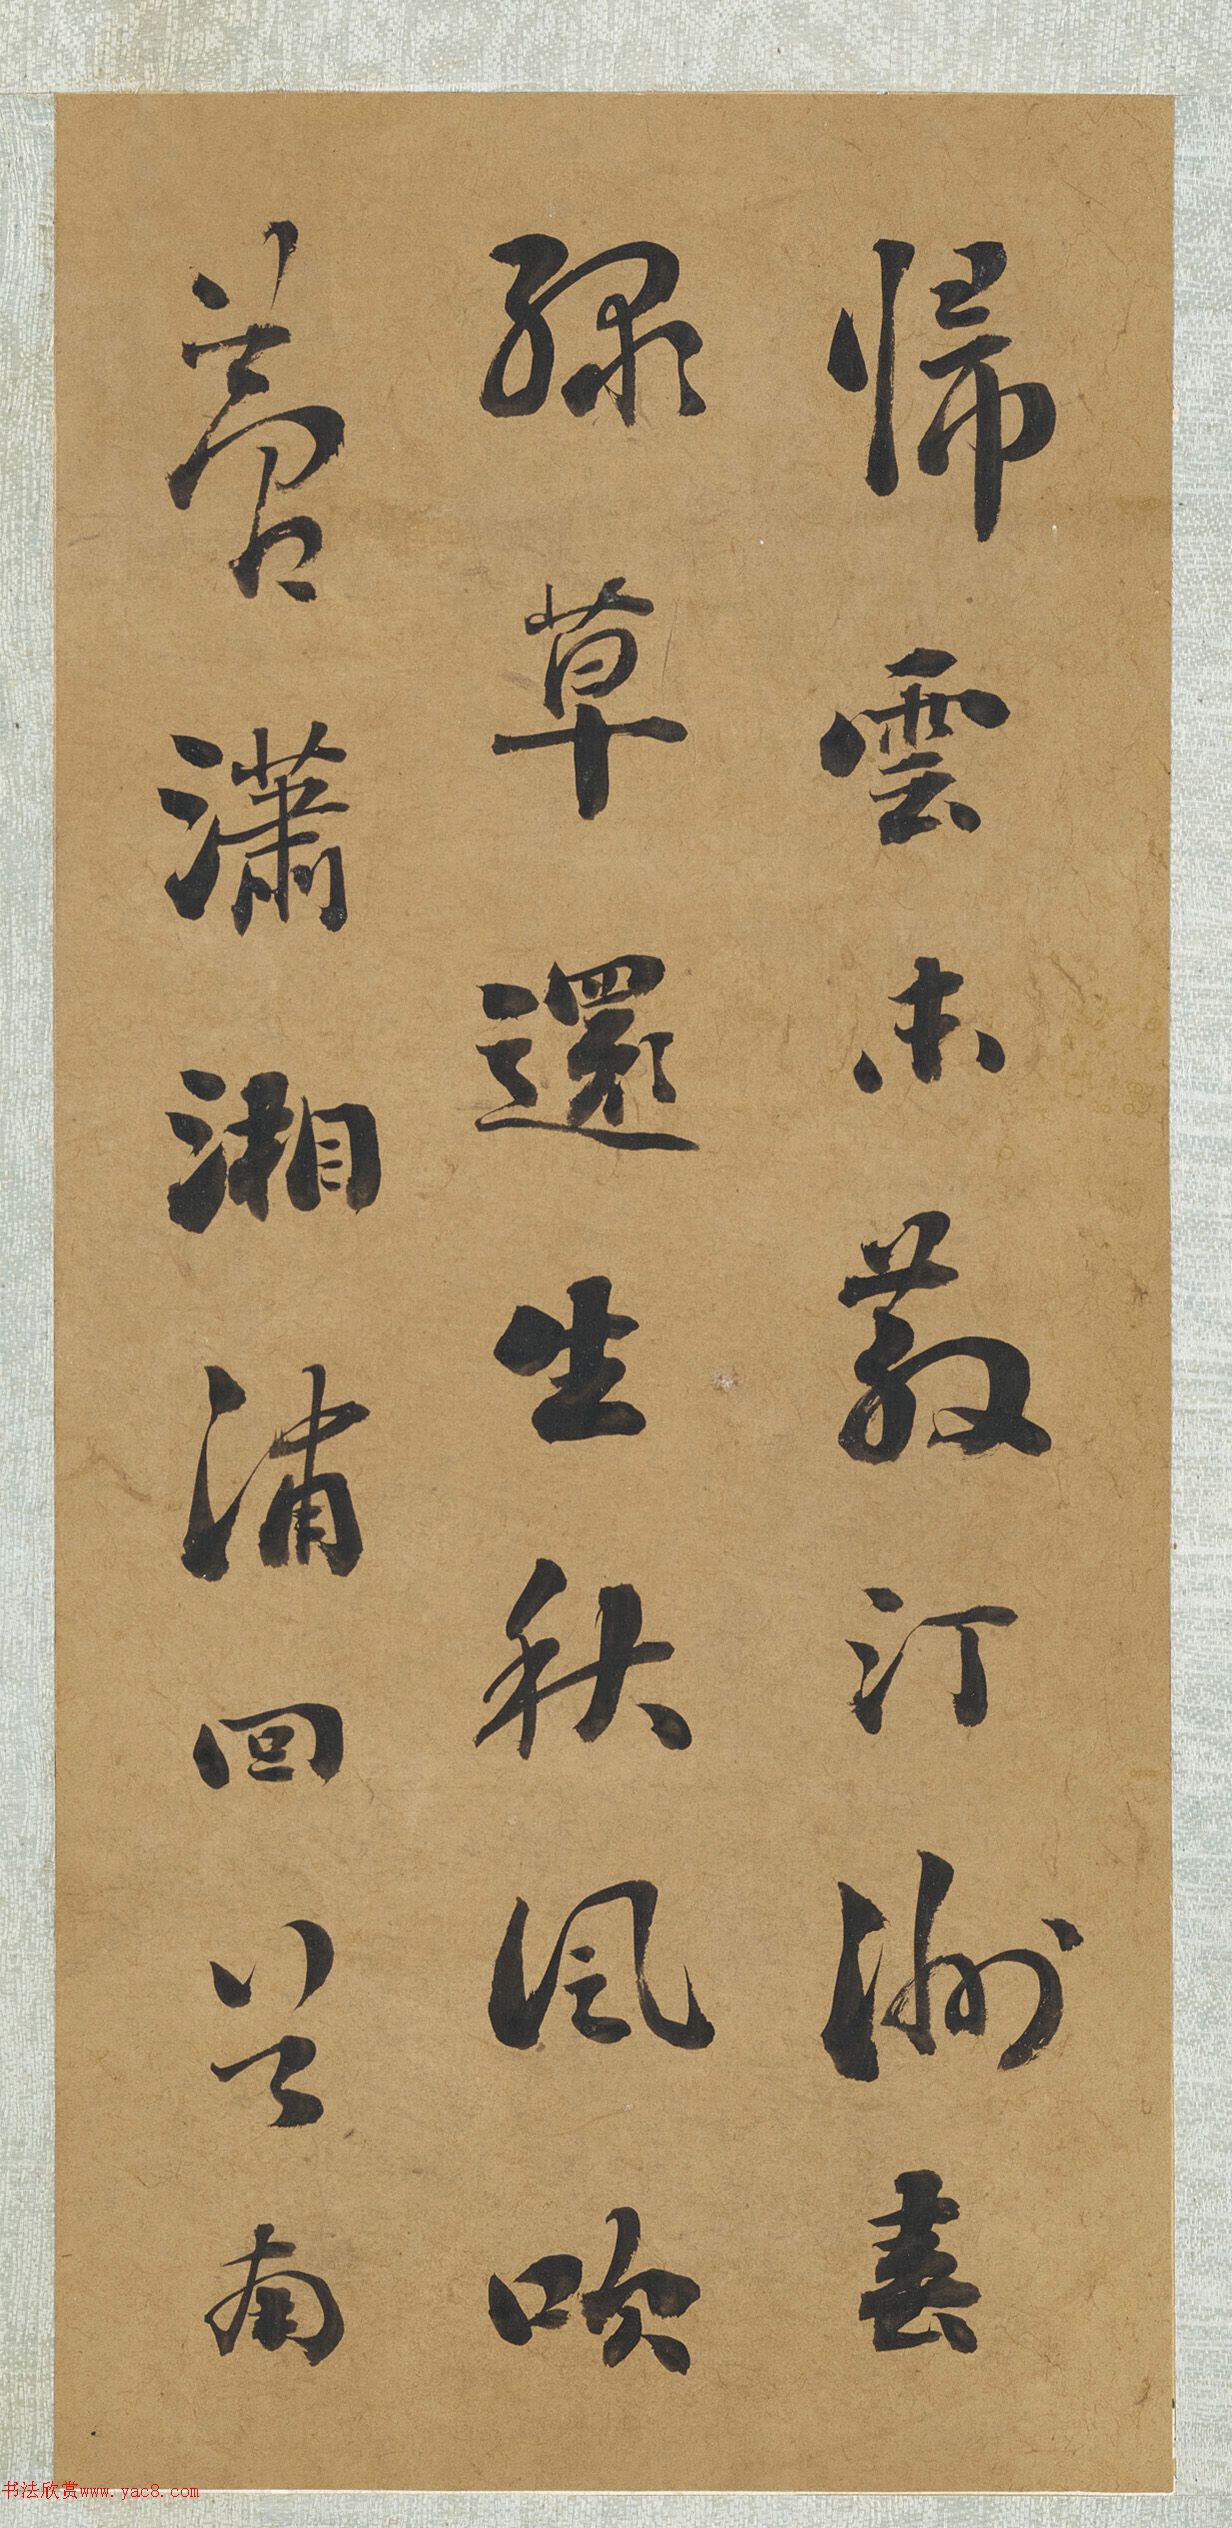 歸雲未散汀洲春
綠草還生秋風吹
夢瀟湘浦回首南
书法欣赏www.yac8.com